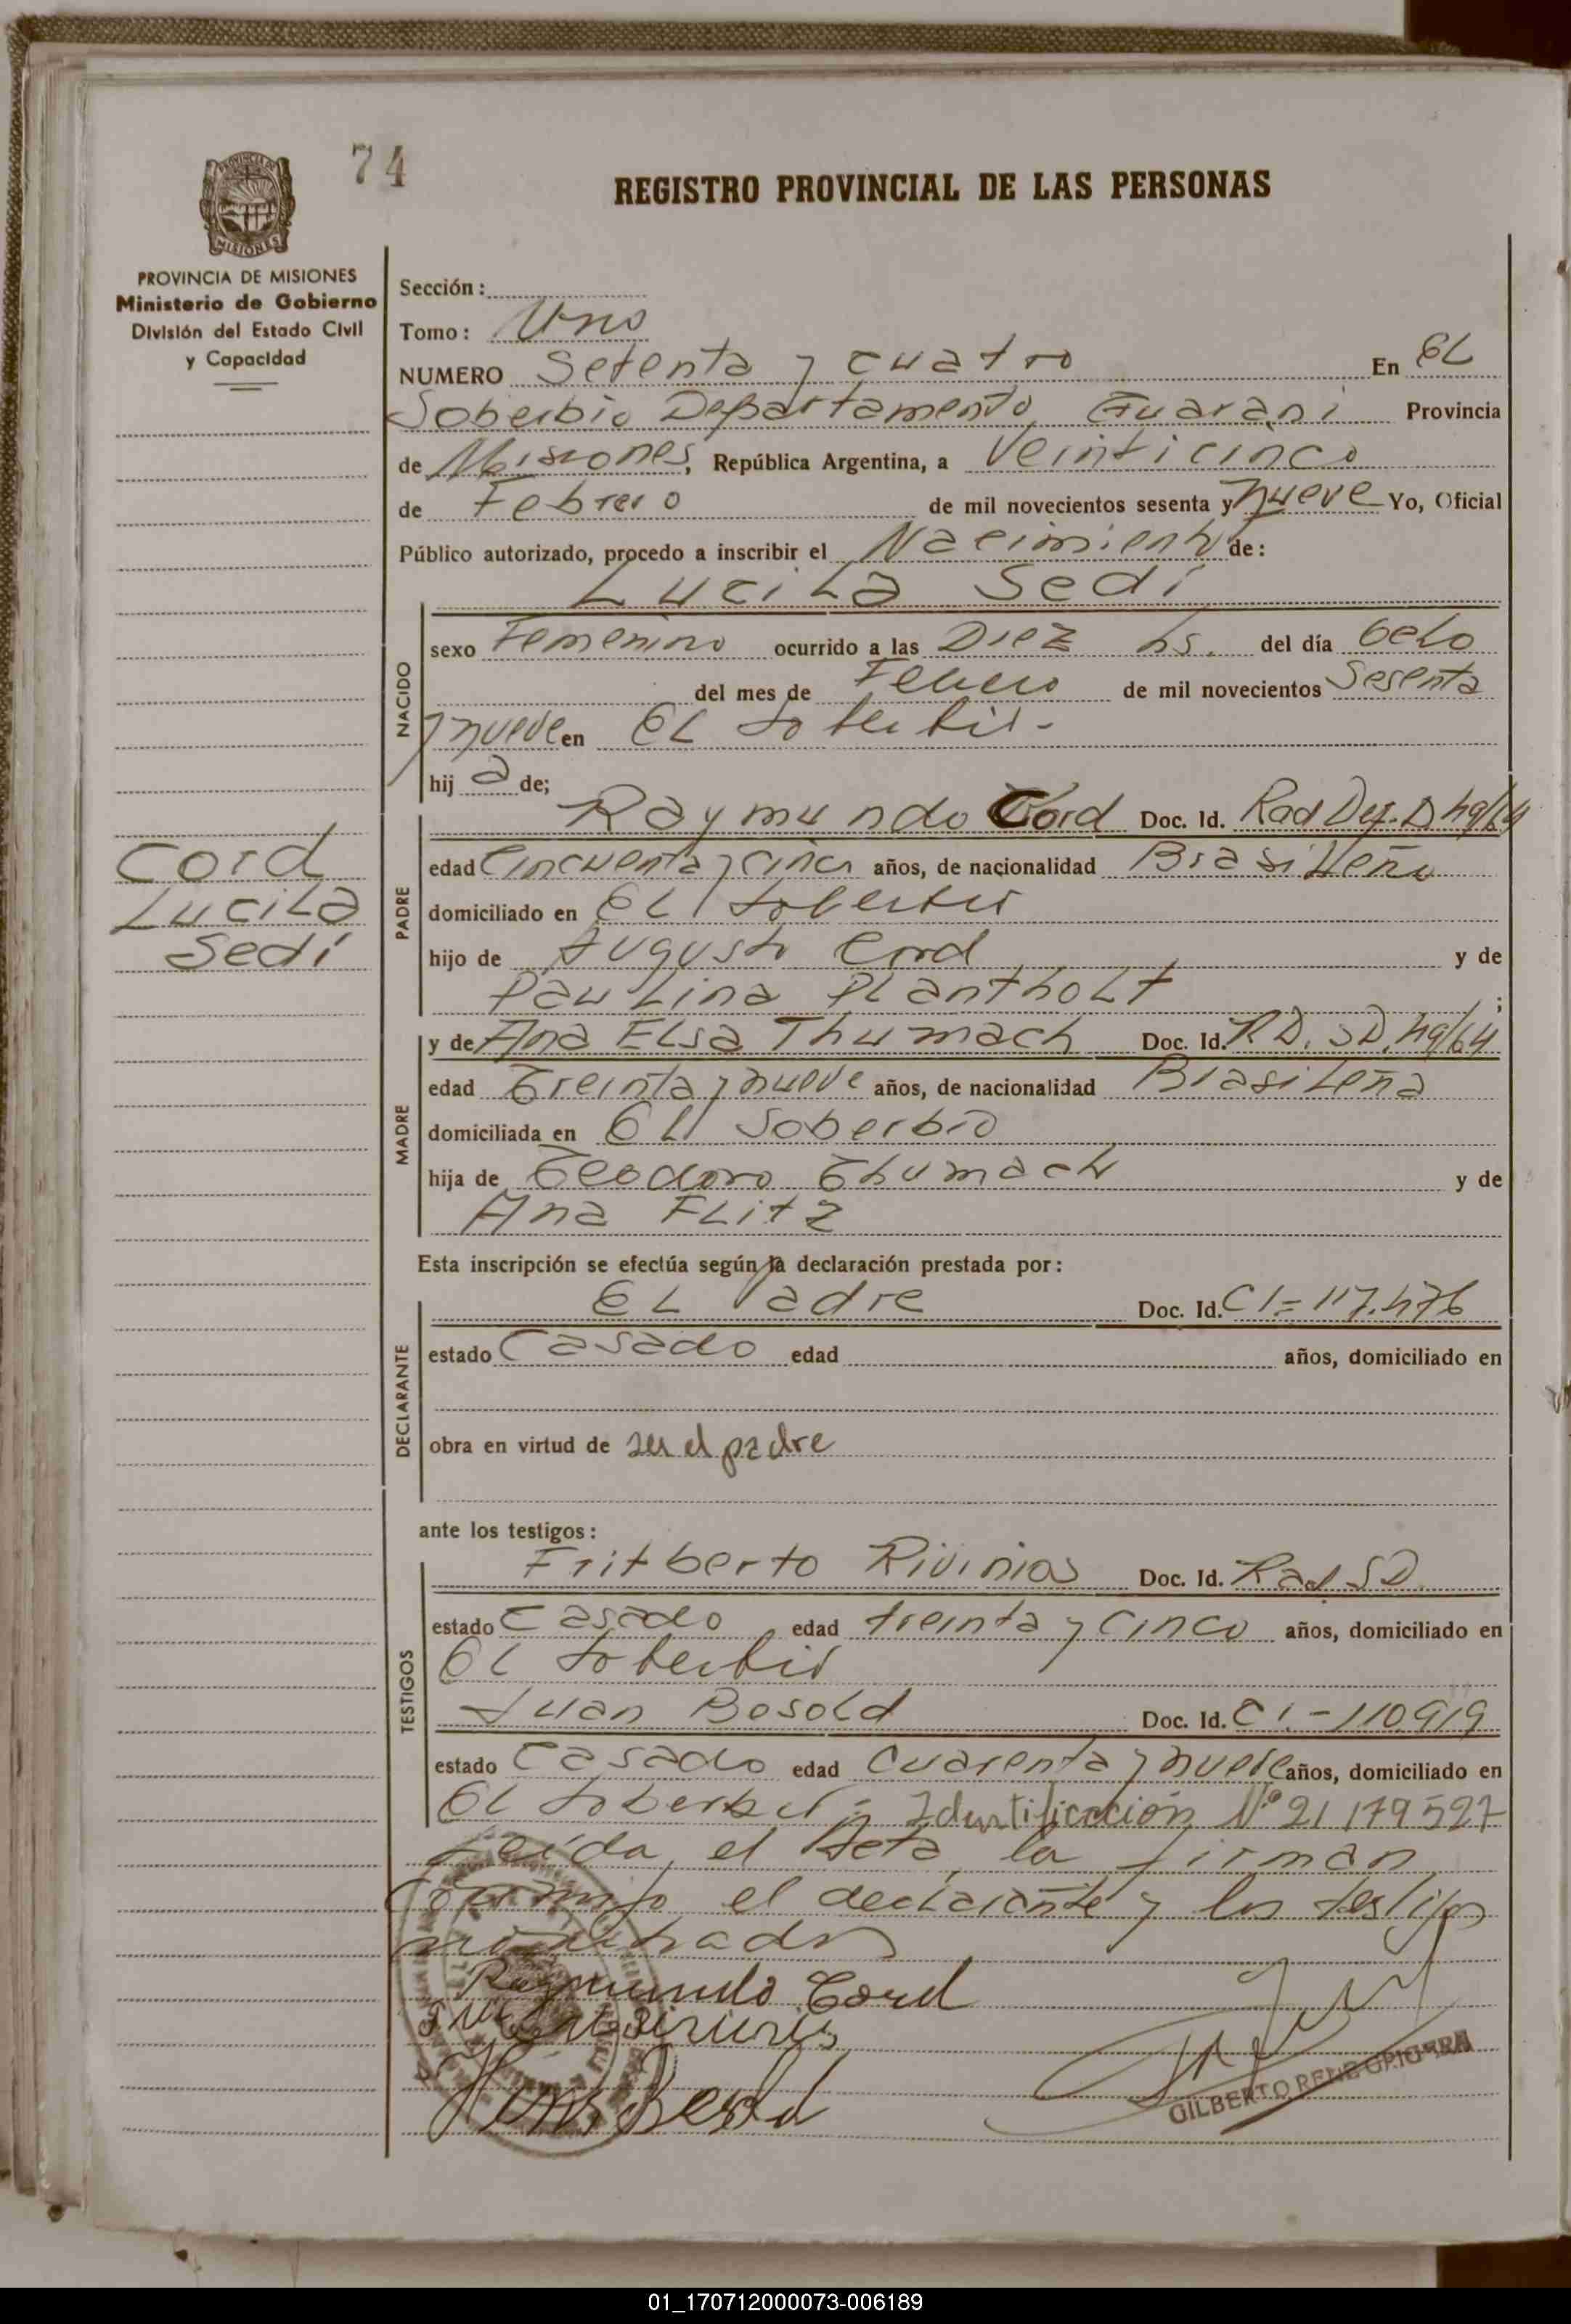 74
REGISTRO PROVINCIAL DE LAS PERSONAS
PROVINCIA DE MISIONES
Ministerio de Gobierno
División del Estado Civil
y Capacidad
Sección:
Tomo: Uno
NUMERO Setenta y cuatro En EL
Soberbio Departamento Guarani Provincia
de Misiones, República Argentina, a Veinticinco
de Febrero de mil novecientos sesenta y nueve Yo, Oficial
Público autorizado, procedo a inscribir el Nacimiento de:
Lucila Sedi
NACIDO
sexo Femenino ocurrido a las Diez hs. del día ocho
del mes de Febrero de mil novecientos Sesenta
y nueve en EL Soberbio-
hij a de;
Raymundo Cord Doc. Id. Rad
Cord
Lucila
Sedi
PADRE
edad Cincuenta y cinco años, de nacionalidad Brasileño
domiciliado en EL Soberbio
hijo de Augusto Cord y de
Paulina Plantholt ;
MADRE
y de Ana Elsa Thumach Doc. Id. R D. SD. 49/64
edad Treinta y nueve años, de nacionalidad Brasileña
domiciliada en EL Soberbio
hija de Teodoro Thumach y de
Ana Flitz
Esta inscripción se efectúa según la declaración prestada por:
DECLARANTE
EL Padre Doc. Id. CI=117.476
estado Casado edad años, domiciliado en
obra en virtud de ser el padre
ante los testigos:
TESTIGOS
Fritberto Rivinios Doc. Id. Rad SD.
estado Casado edad treinta y cinco años, domiciliado en
EL Soberbio
Juan Bosold Doc. Id. CI.-110919
estado Casado edad Cuarenta y nueve años, domiciliado en
EL Soberbio- Identificación Nº 21 179 527
Leída el Acta, la firman
conmigo el declarante y los testigos
nombrados
Raymundo Cord
GILBERTO RENE
01_170712000073-006189